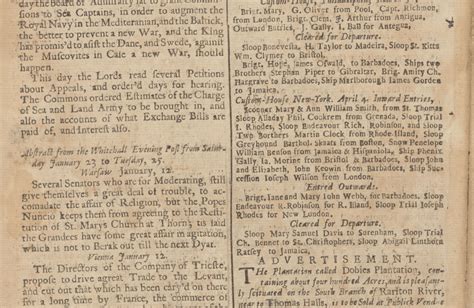 the Board of Admiralty
to Sea Captains, in order to augment the
Royal Navy in the Mediterranean, and the Baltick,
the better to prevent a new War, and the King
has promis'd to assist the Dane, and Swede, against
the Muscovites in Case a new War, should
happen.
This day the Lords read several Petitions
about Appeals, and order'd days for hearing.
The Commons ordered Estimates of the Charge
of Sea and Land Army to be brought in, and
also the accounts of what Exchange Bills are
paid of, and Interest also.
Abstract from the Whitehall Evening Post from Satur-
day January 23 to Tuesday, 25.
Warsaw January, 12.
Several Senators who are for Moderating, still
give themselves a great deal of trouble, to acco-
modate the affair of Religion, but the Popes
Nuncio keeps them from agreeing to the Resti-
tution of St. Marys Church at Thorn; its said
the Grandees have some great affair in agitation,
which is not to Break out till the next Dyat.
Vienna January 12.
The Directors of the Company of Trieste,
propose to drive a great Trade to the Levant,
and that which has been carry'd on there
for a long time by France, the commerce of
Brigt. Mary, G. Olivyt from Pool, Capt. Richmon,
from London, Brigt. Clem; F. Arthur from Antigua,
Outward Entries, J. Gally I. Ball for Antegua.
Cleared for Departure.
Sloop Bonovelda, H. Taylor to Madeira, Sloop St. Kitts
Wm. Clymer to Bristol.
Brigt. Hope, James Ofwater, to Barbadoes, Ships two
Brothers Stephen Piper to Gibraltar, Brig. Amity Ch.
Hargrave to Barbadoes, Ship Marlborough James Gorden
to Jamaica.
Custom-House New-York. April 4. Inward Entries,
Scooner Mary & Ann William Smith, from St. Thomas
Sloop Alladay Phil. Cockrem from Grenada, Sloop Trial
F. Rhodes, Sloop Endeavor Rich, Robinson, and Sloop
Two Borthers Martin Clock from Rhode-Island, Sloop
Greyhound Barthol Skaats from Boston, Snow Penelope
William Benson from Jamaica, Ship Phenix
Gally Ia. Morine from Bristol & Barbadoes, Sloop John
and Elizabeth John Hinson from Kent, Ship Suc-
cession Joseph Wilson from London.
Entred Outwards.
Brigt. Iane and Mary John Webb, for Barbadoes. Sloop
Endeavor Robinson for R. Island, Sloop Trial Joseph
Rhodes for New London.
Cleared for Departure.
Sloop Mary Samuel Davis to Sorenam, Sloop Trial
Ch. Bennet to St. Christophers, Sloop Abigail Linthorn
Ratsey to Jamaica.
ADVERTISEMENT.
The Plantation called Dobies Plantation, con-
taining Two Hundred Acres, and is pleasantly
scituated on the South Branch of Rariton River,
near Thomas Halls, is to be Sold at Publick Vendue